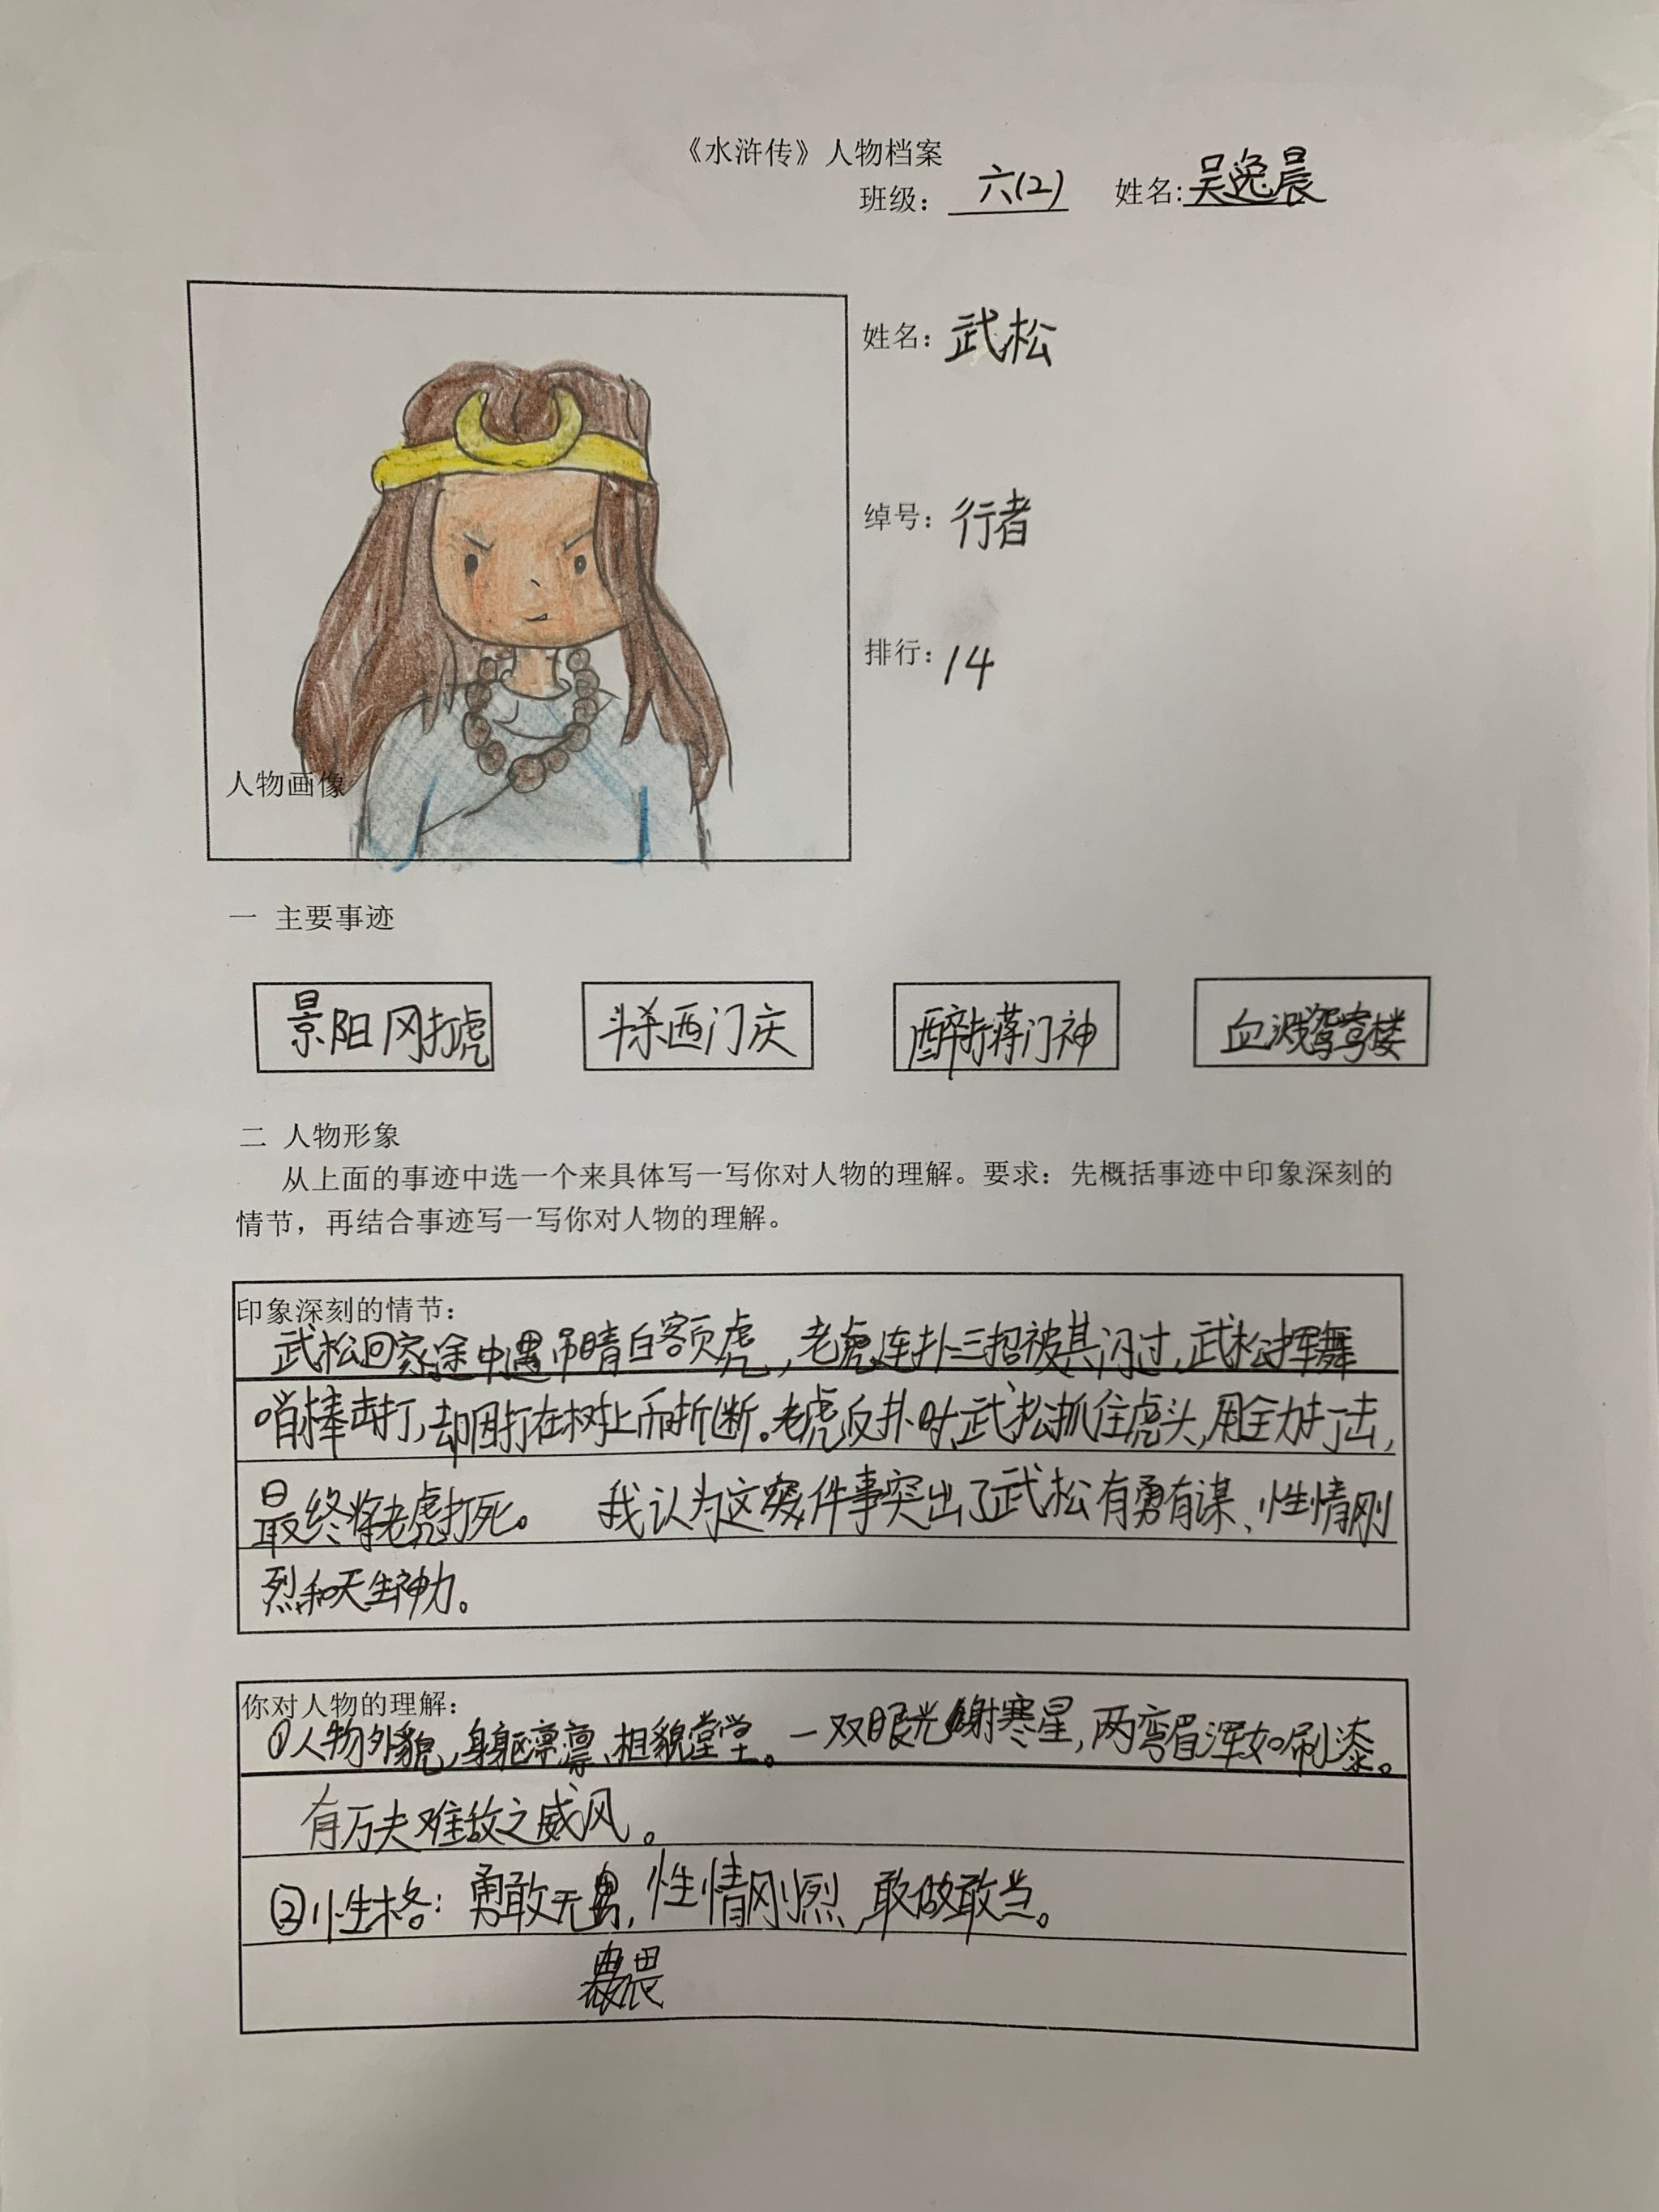 《水浒传》人物档案
班级：六(2) 姓名:吴逸晨
姓名：武松
绰号：行者
排行：14
人物画像
一 主要事迹
景阳冈打虎 斗杀西门庆 醉打蒋门神 血溅鸳鸯楼
二 人物形象
从上面的事迹中选一个来具体写一写你对人物的理解。要求：先概括事迹中印象深刻的
情节，再结合事迹写一写你对人物的理解。
印象深刻的情节：
武松回家途中遇吊睛白额虎，老虎连扑三招被其闪过，武松挥舞
哨棒击打，却因打在树上而折断。老虎反扑时，武松抓住虎头，用全力打击，
最终将老虎打死。 我认为这件事突出了武松有勇有谋、性情刚
烈和天生神力。
你对人物的理解：
①人物外貌，身躯凛凛、相貌堂堂。一双眼光射寒星，两弯眉浑如刷漆。
有万夫难敌之威风。
②性格：勇敢无，性情刚烈，敢做敢当。
畏